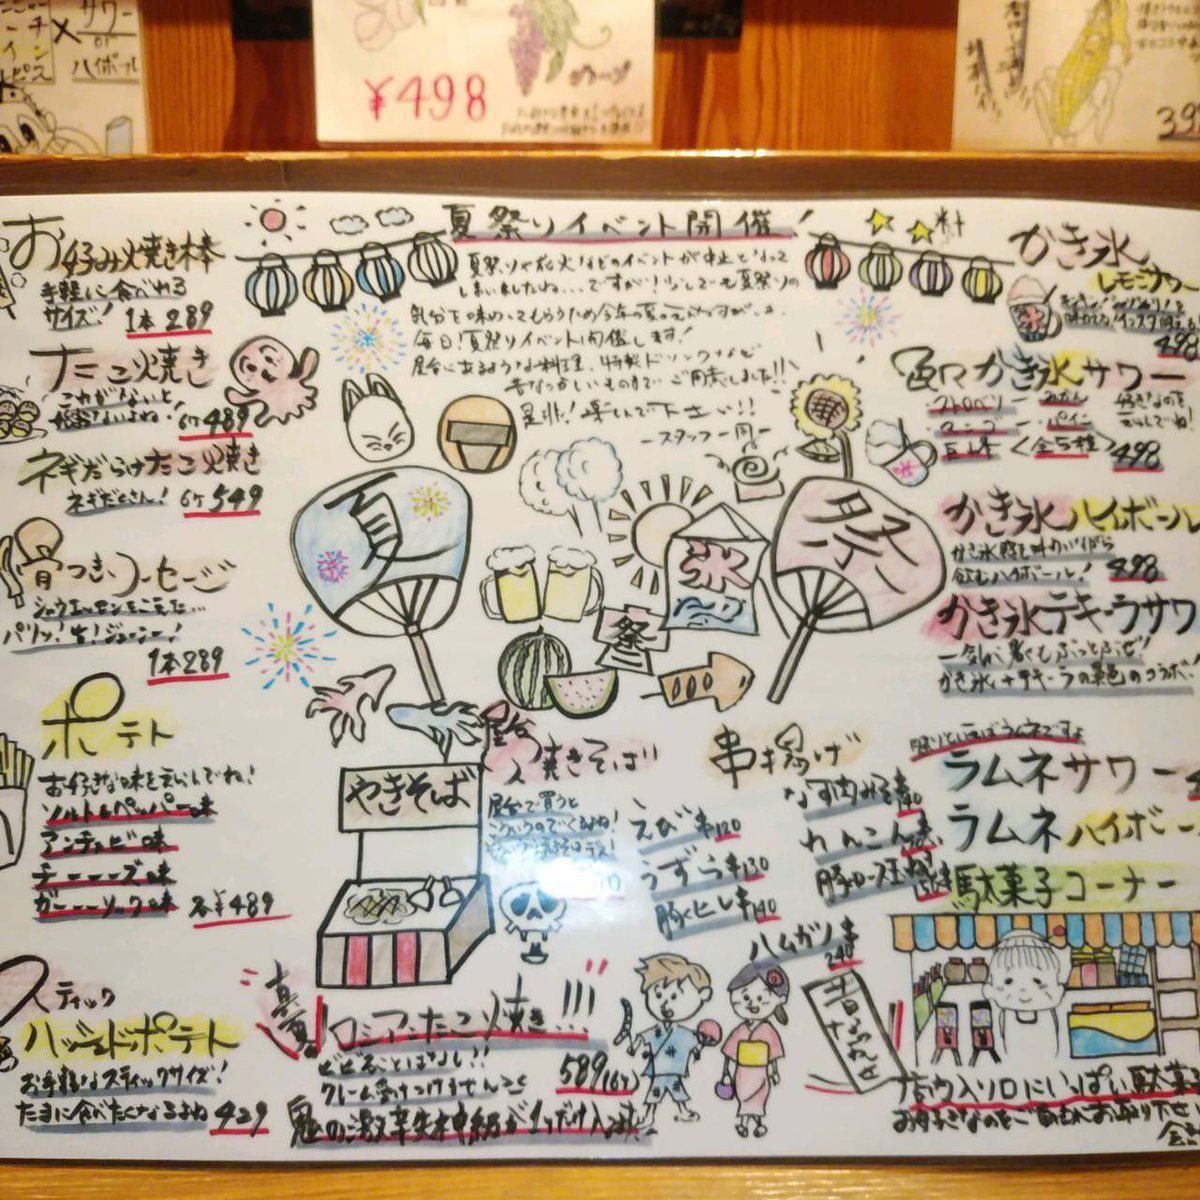 サワー
×
or
ハイボール
¥498
グレープ
39
夏祭りイベント開催!
夏祭りや花火などのイベントが中止となって
しまいましたね…ですが!少しでも夏祭りの
気分を味わってもらうため今年の夏の
毎日!夏祭りイベント開催します!
屋台にあるような料理、特製ドリンクなど
昔なつかしいものまでご用意しました!!
是非!楽しんで下さい!!
ースタッフ一同ー
お好み焼き棒
手軽に食べれる
サイズ! 1本289
たこ焼き
これがないと
始まらないよね! 6ケ489
ネギだらけたこ焼き
ネギだくさん! 6ケ549
骨つきソーセージ
シャウエッセンをこえた…
パリッ!ジューシー!
1本289
ポテト
お好きな味をえらんでね!
ソルト&ペッパー味
アンチョビ味
チーーーズ味
ガーーーリック味 各¥489
スティック
ハッシュドポテト
お手軽なスティックサイズ!
たまに食べたくなるよね 429
夏
祭
氷
祭
やきそば
屋台
焼きそば
屋台で買うと
串揚げ
えび串120
うずら串130
豚ヒレ串140
なす肉みそ串140
れんこん串
豚ロース
ハムカツ串
240
真夏の
ロシアンたこ焼き!!!
ビビることはなし!!
クレーム受けつけませんこと
589(6ケ)
鬼の激辛失神級が1つだけ入
かき氷
レモンサワー
498
色々かき氷サワー
ストロベリー みかん 好きなのを
マンゴー パイン えらんでね!
巨峰 <全5種> 498
かき氷ハイボール
かき氷感を味わいながら
飲むハイボール! 498
かき氷テキーラサワ
一気に暑くもぶっとぶぜ!
かき氷+テキーラの異色のコラボ!
祭りといえばラムネですよ
ラムネサワー
ラムネハイボー
駄菓子コーナー
昔なつかしい
店の入り口にいっぱい駄菓
お好きなのをご自由にお取り下さ